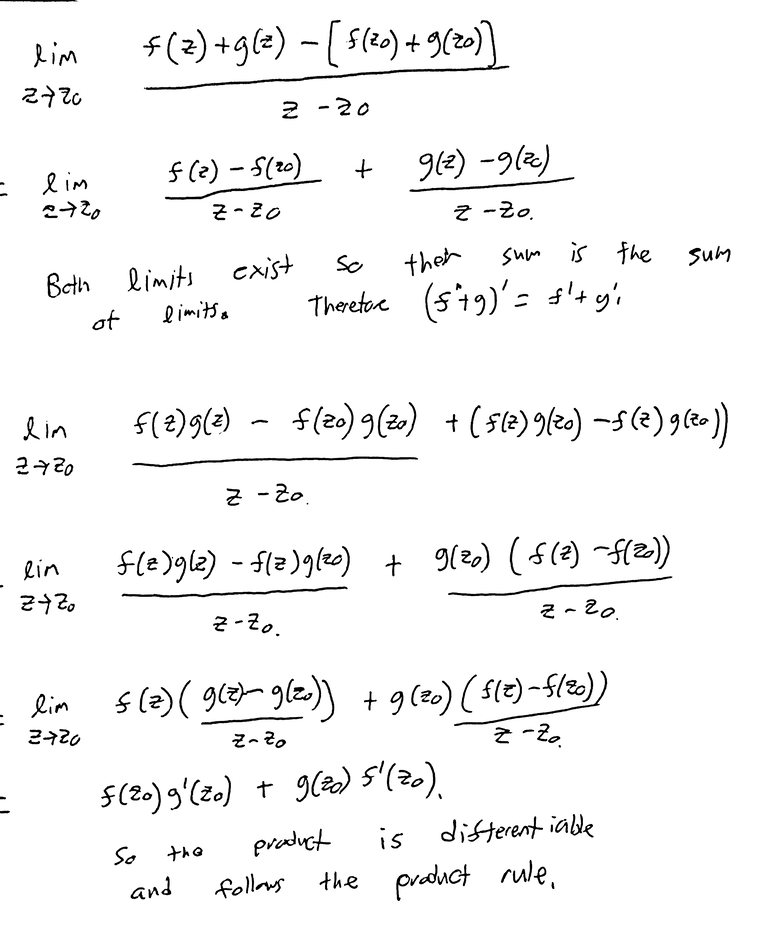 lim z→z0 f(z)+g(z) − [f(z0)+g(z0)] / z − z0
= lim z→z0 f(z) − f(z0) / z − z0 + g(z) − g(z0) / z − z0.
Both limits exist so their sum is the sum
of limits. Therefore (f+g)' = f'+g'.
lim z→z0 f(z)g(z) − f(z0)g(z0) + (f(z)g(z0) − f(z)g(z0)) / z − z0.
= lim z→z0 f(z)g(z) − f(z)g(z0) / z − z0. + g(z0) (f(z) − f(z0)) / z − z0.
= lim z→z0 f(z) (g(z) − g(z0)) / z − z0 + g(z0) (f(z) − f(z0)) / z − z0.
= f(z0)g'(z0) + g(z0) f'(z0).
So the product is differentiable
and follows the product rule.